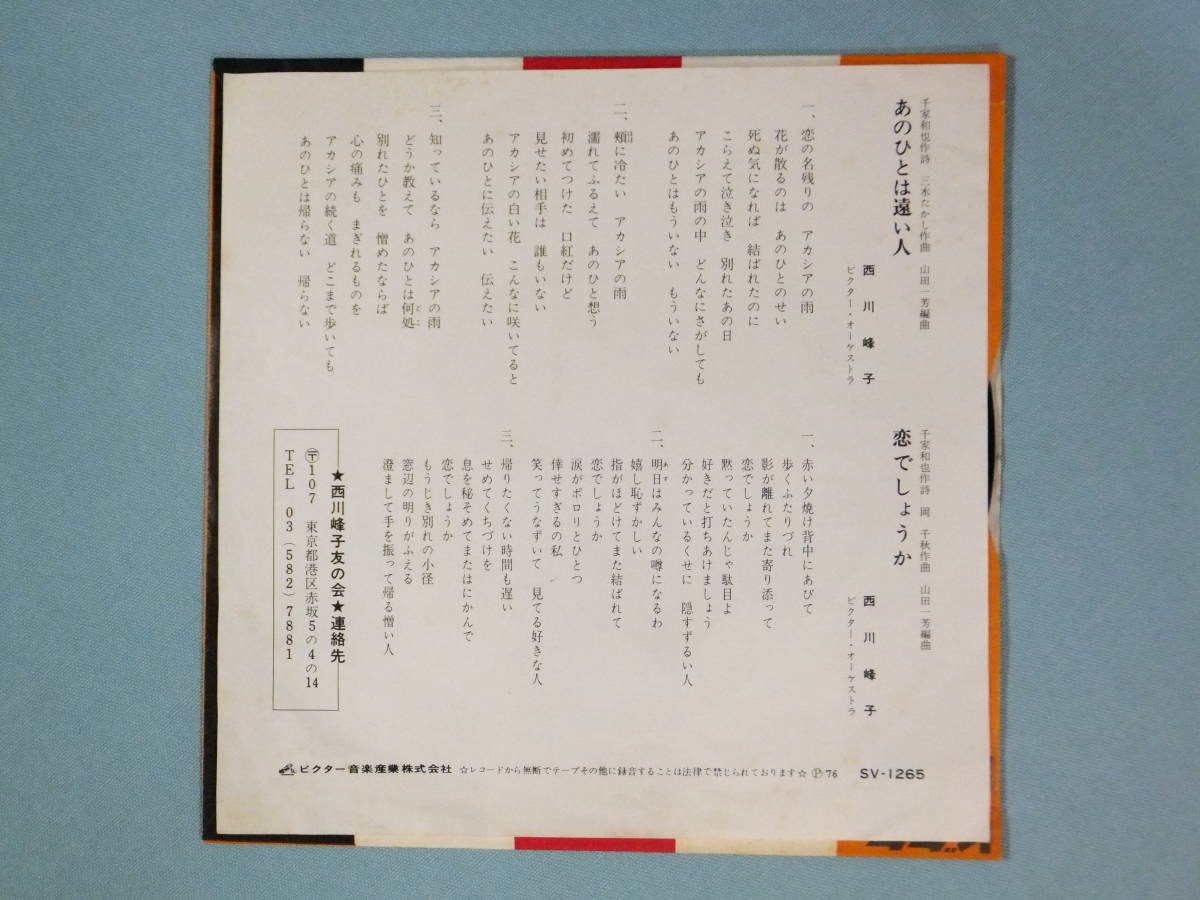 あのひとは遠い人
千家和也作詩　三木たかし作曲　山田一芳編曲
西川峰子
ビクター・オーケストラ
一、恋の名残りの　アカシアの雨
花が散るのは　あのひとのせい
死ぬ気になれば　結ばれたのに
こらえて泣き泣き　別れたあの日
アカシアの雨の中　どんなにさがしても
あのひとはもういない　もういない
二、頬に冷たい　アカシアの雨
濡れてふるえて　あのひと想う
初めてつけた　口紅だけど
見せたい相手は　誰もいない
アカシアの白い花　こんなに咲いてると
あのひとに伝えたい　伝えたい
三、知っているなら　アカシアの雨
どうか教えて　あのひとは何処
別れたひとを　憎めたならば
心の痛みも　まぎれるものを
アカシアの続く道　どこまで歩いても
あのひとは帰らない　帰らない
恋でしょうか
千家和也作詩　岡　千秋作曲　山田一芳編曲
西川峰子
ビクター・オーケストラ
一、赤い夕焼け背中にあびて
歩くふたりづれ
影が離れてまた寄り添って
恋でしょうか
黙っていたんじゃ駄目よ
好きだと打ちあけましょう
分かっているくせに　隠すずるい人
二、明日はみんなの噂になるわ
あす
嬉し恥ずかしい
指がほどけてまた結ばれて
恋でしょうか
涙がポロリとひとつ
倖せすぎるの私
笑ってうなずいて　見てる好きな人
三、帰りたくない時間も遅い
せめてくちづけを
息を秘そめてまたはにかんで
恋でしょうか
もうじき別れの小径
窓辺の明りがふえる
澄まして手を振って帰る憎い人
★西川峰子友の会★連絡先
〒107　東京都港区赤坂5の4の14
TEL　03（582）7881
ビクター音楽産業株式会社　☆レコードから無断でテープその他に録音することは法律で禁じられております☆　Ⓟ76　SV-1265